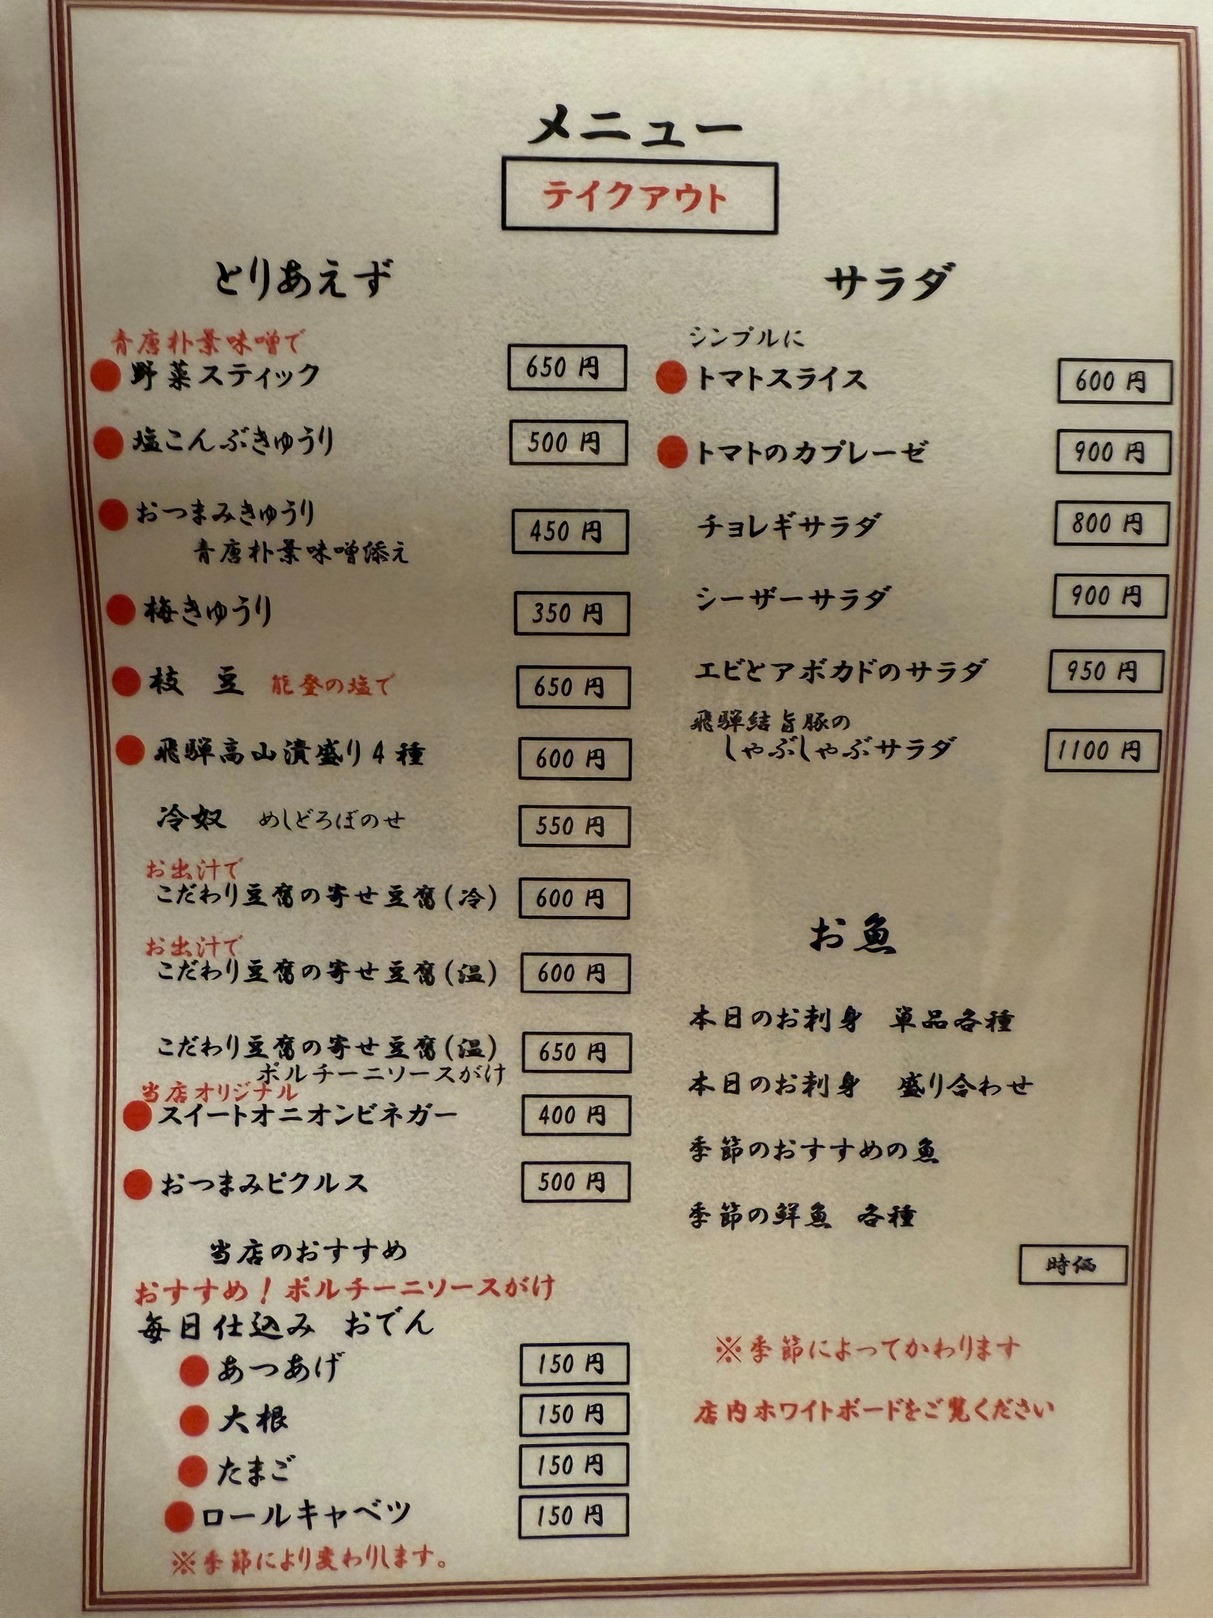 メニュー
テイクアウト
とりあえず
青唐朴葉味噌で
野菜スティック 650 円
塩こんぶきゅうり 500 円
おつまみきゅうり
青唐朴葉味噌添え 450 円
梅きゅうり 350 円
枝 豆 能登の塩で 650 円
飛騨高山漬盛り4種 600 円
冷奴 めしどろぼのせ 550 円
お出汁で
こだわり豆腐の寄せ豆腐(冷) 600 円
お出汁で
こだわり豆腐の寄せ豆腐(温) 600 円
こだわり豆腐の寄せ豆腐(温) 650 円
ポルチーニソースがけ
当店オリジナル
スイートオニオンビネガー 400 円
おつまみピクルス 500 円
当店のおすすめ
おすすめ!ポルチーニソースがけ
毎日仕込み おでん
あつあげ 150 円
大根 150 円
たまご 150 円
ロールキャベツ 150 円
※季節により変わりします。
サラダ
シンプルに
トマトスライス 600 円
トマトのカプレーゼ 900 円
チョレギサラダ 800 円
シーザーサラダ 900 円
エビとアボカドのサラダ 950 円
飛騨結旨豚の
しゃぶしゃぶサラダ 1100 円
お魚
本日のお刺身 単品各種
本日のお刺身 盛り合わせ
季節のおすすめの魚
季節の鮮魚 各種
時価
※季節によってかわります
店内ホワイトボードをご覧ください